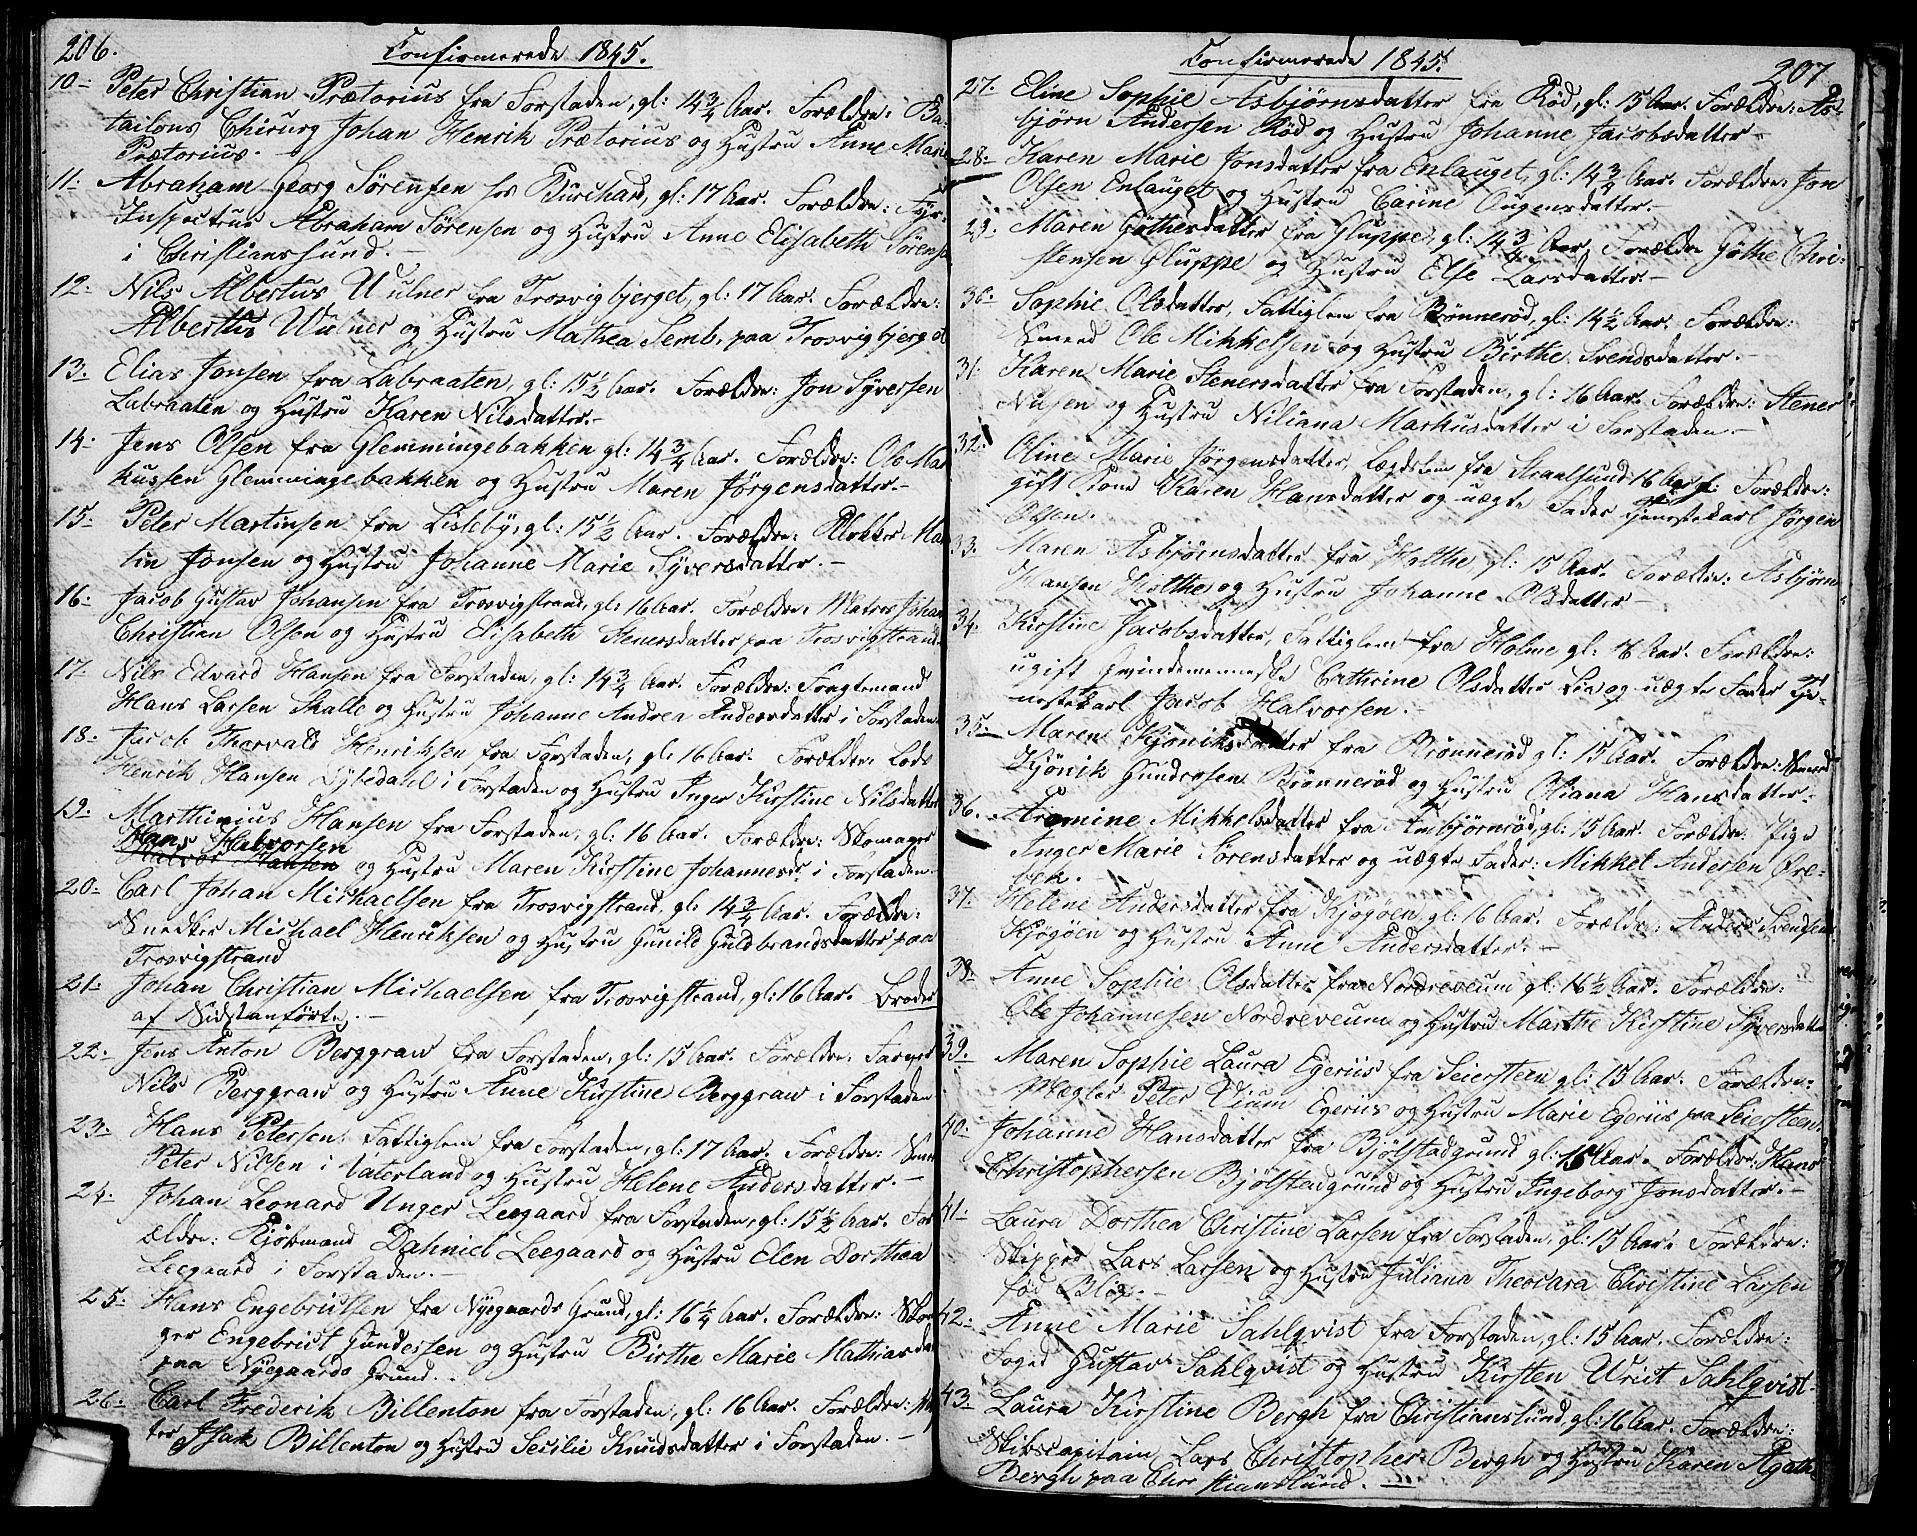 206.
Confirmerede 1845.
10. Peter Christian Prætorius fra Forstaden, gl: 14 3/4 Aar. Forældre: Ba-
tailons Chirurg Johan Henrik Prætorius og Hustru Anne Marie
Prætorius.
11. Abraham Georg Sørensen hos Burchard, gl: 17 Aar. Forældre: Fyr-
Inspecteur Abraham Sørensen og Hustru Anne Elisabeth Sørensen
i Christianssund.
12. Nils Albertus Wulner fra Trosvigbjerget, gl: 17 Aar. Forældre:
Albertus Wulner og Hustru Mathea Semb, paa Trosvigbjerget
13. Elias Jonsen fra Labraaten, gl: 15 1/2 Aar. Forældre: Jon Syversen
Labraaten og Hustru Karen Nilsdatter.
14. Jens Olsen fra Glemmingebakken gl: 14 3/4 Aar. Forældre: Ole Mar
kussen Glemmingebakken og Hustru Maren Jørgensdatter.
15. Peter Martinsen fra Lisleby, gl: 15 1/2 Aar. Forældre: Klokker Mar
tin Jonsen og Hustru Johanne Marie Syversdatter.
16. Jacob Gustav Johansen fra Trosvigstrand, gl: 16 Aar. Forældre: Matros Johan
Christian Olsen og Hustru Elisabeth Stenersdatter paa Trosvigstrand
17. Nils Edvard Hansen fra Forstaden, gl: 14 3/4 Aar. Forældre: Fragtemand
Hans Larsen Skalle og Hustru Johanne Andrea Andersdatter i Forstaden
18. Jacob Thorvald Henriksen fra Forstaden, gl: 16 Aar. Forældre: Lods
Henrik Hansen Lysedahl i Forstaden og Hustru Inger Kirstine Nilsdatter
19. Marthinius Hansen fra Forstaden, gl: 16 Aar. Forældre: Skomager
Hans Halvorsen
Halvor Hansen og Hustru Maren Kirstine Johannesd. i Forstaden.
20. Carl Johan Michaelsen fra Trosvigstrand, gl: 14 3/4 Aar. Forældre:
Snedker Michael Henriksen og Hustru Gunild Guldbrandsdatter paa
Trosvigstrand
21. Johan Christian Michaelsen fra Trosvigstrand, gl: 16 Aar. Broder
af Sidstanførte.
22. Jens Anton Berggraw fra Forstaden, gl: 15 Aar. Forældre: Farver
Nils Berggraw og Hustru Anne Kirstine Berggraw i Forstaden
23. Hans Petersen, Fattiglem fra Forstaden, gl: 17 Aar. Forældre: Smed
Peter Nilsen i Vaterland og Hustru Helene Andersdatter.
24. Johan Leonard Unger Leegaard fra Forstaden, gl: 15 1/2 Aar. For
ældre: Kjøbmand Dahniel Leegaard og Hustru Elen Dorthea
Leegaard i Forstaden.
25. Hans Engebretsen fra Nyegaards Grund, gl: 16 1/4 Aar. Forældre: Skoma
ger Engebredt Gundersen og Hustru Birthe Marie Mathiasda
paa Nyegaards Grund.
26. Carl Frederik Billenton fra Forstaden, gl: 16 Aar. Forældre:
Isak Billenton og Hustru Secilie Knudsdatter i Forstaden.
Confirmerede 1845.
207
27. Eline Sophie Asbjørnsdatter fra Rød, gl: 15 Aar. Forældre: As-
bjørn Andersen Rød og Hustru Johanne Jacobsdatter
28. Karen Marie Jonsdatter fra Enlauget, gl: 14 3/4 Aar. Forældre: Jon
Olsen Enlauget og Hustru Carine Ougensdatter.
29. Maren Gøthesdatter fra Gluppe, gl: 14 3/4 Aar. Forældre Gøthe Chri-
stensen Gluppe og Hustru Else Larsdatter.
30. Sophie Olsdatter, Fattiglem fra Rønnerød, gl: 14 1/2 Aar. Forældre:
Smed Ole Mikkelsen og Hustru Birthe Svendsdatter.
31. Karen Marie Stenersdatter fra Forstaden, gl: 16 Aar. Forældre: Stener
Nilsen og Hustru Niliana Markusdatter i Forstaden.
32. Oline Marie Jørgensdatter, Lægdslem fra Straalsund 16 Aar gl. Forældre:
gift Kone Karen Hansdatter og uægte Fader Tjenestekarl Jørgen
Olsen.
33. Maren Asbjørnsdatter fra Holthe, gl: 15 Aar. Forældre: Asbjørn
Hansen Holthe og Hustru Johanne Olsdatter
34. Kirstine Jacobsdatter, Fattiglem fra Holme gl: 16 Aar. Forældre:
ugift Qvindemenneske Cathrine Olsdatter Lie og uægte Fader Tje-
nestekarl Jacob Halvorsen.
35. Maren Kjøniksdatter fra Brønnerød gl: 15 Aar. Forældre: Smed
Kjønik Gundersen Brønnerød og Hustru Oliana Hansdatter.
36. Framine Mikkelsdatter fra Ambjørnrød, gl: 15 Aar. Forældre: Pige
Inger Marie Sørensdatter og uægte Fader: Mikkel Andersen Øre-
bek.
37. Helene Andersdatter fra Kjøgøen, gl: 16 Aar. Forældre: Anders Svendsen
Kjøgøen og Hustru Anne Andersdatter.
38. Anne Sophie Olsdatter fra Nordreveum gl: 16 1/2 Aar. Forældre:
Ole Johannesen Nordreveum og Hustru Marthe Kirstine Syversdatter
39. Maren Sophie Laura Egeriis fra Seiersteen gl: 15 Aar. Forældre:
Mægler Peter Vium Egeriis og Hustru Marie Egeriis paa Seiersteen
40. Johanne Hansdatter fra Bjølstadgrund gl: 15 Aar. Forældre: Hans
Christophersen Bjølstadgrund og Hustru Ingeborg Jonsdatter.
41. Laura Dorthea Christine Larsen fra Forstaden, gl: 15 Aar. Forældre:
Skipper Lars Larsen og Hustru Juliana Theodara Christine Larsen
fød Blix.
42. Anne Marie Sahlqvist fra Forstaden, gl: 15 Aar. Forældre:
Foged Gustav Sahlqvist og Hustru Kirsten Wriit Sahlqvist.
43. Laura Kirstine Bergh fra Christianslund, gl: 16 Aar. Forældre:
Skibscapitain Lars Christopher Bergh og Hustru Karen Agathe
Bergh paa Christianslund.